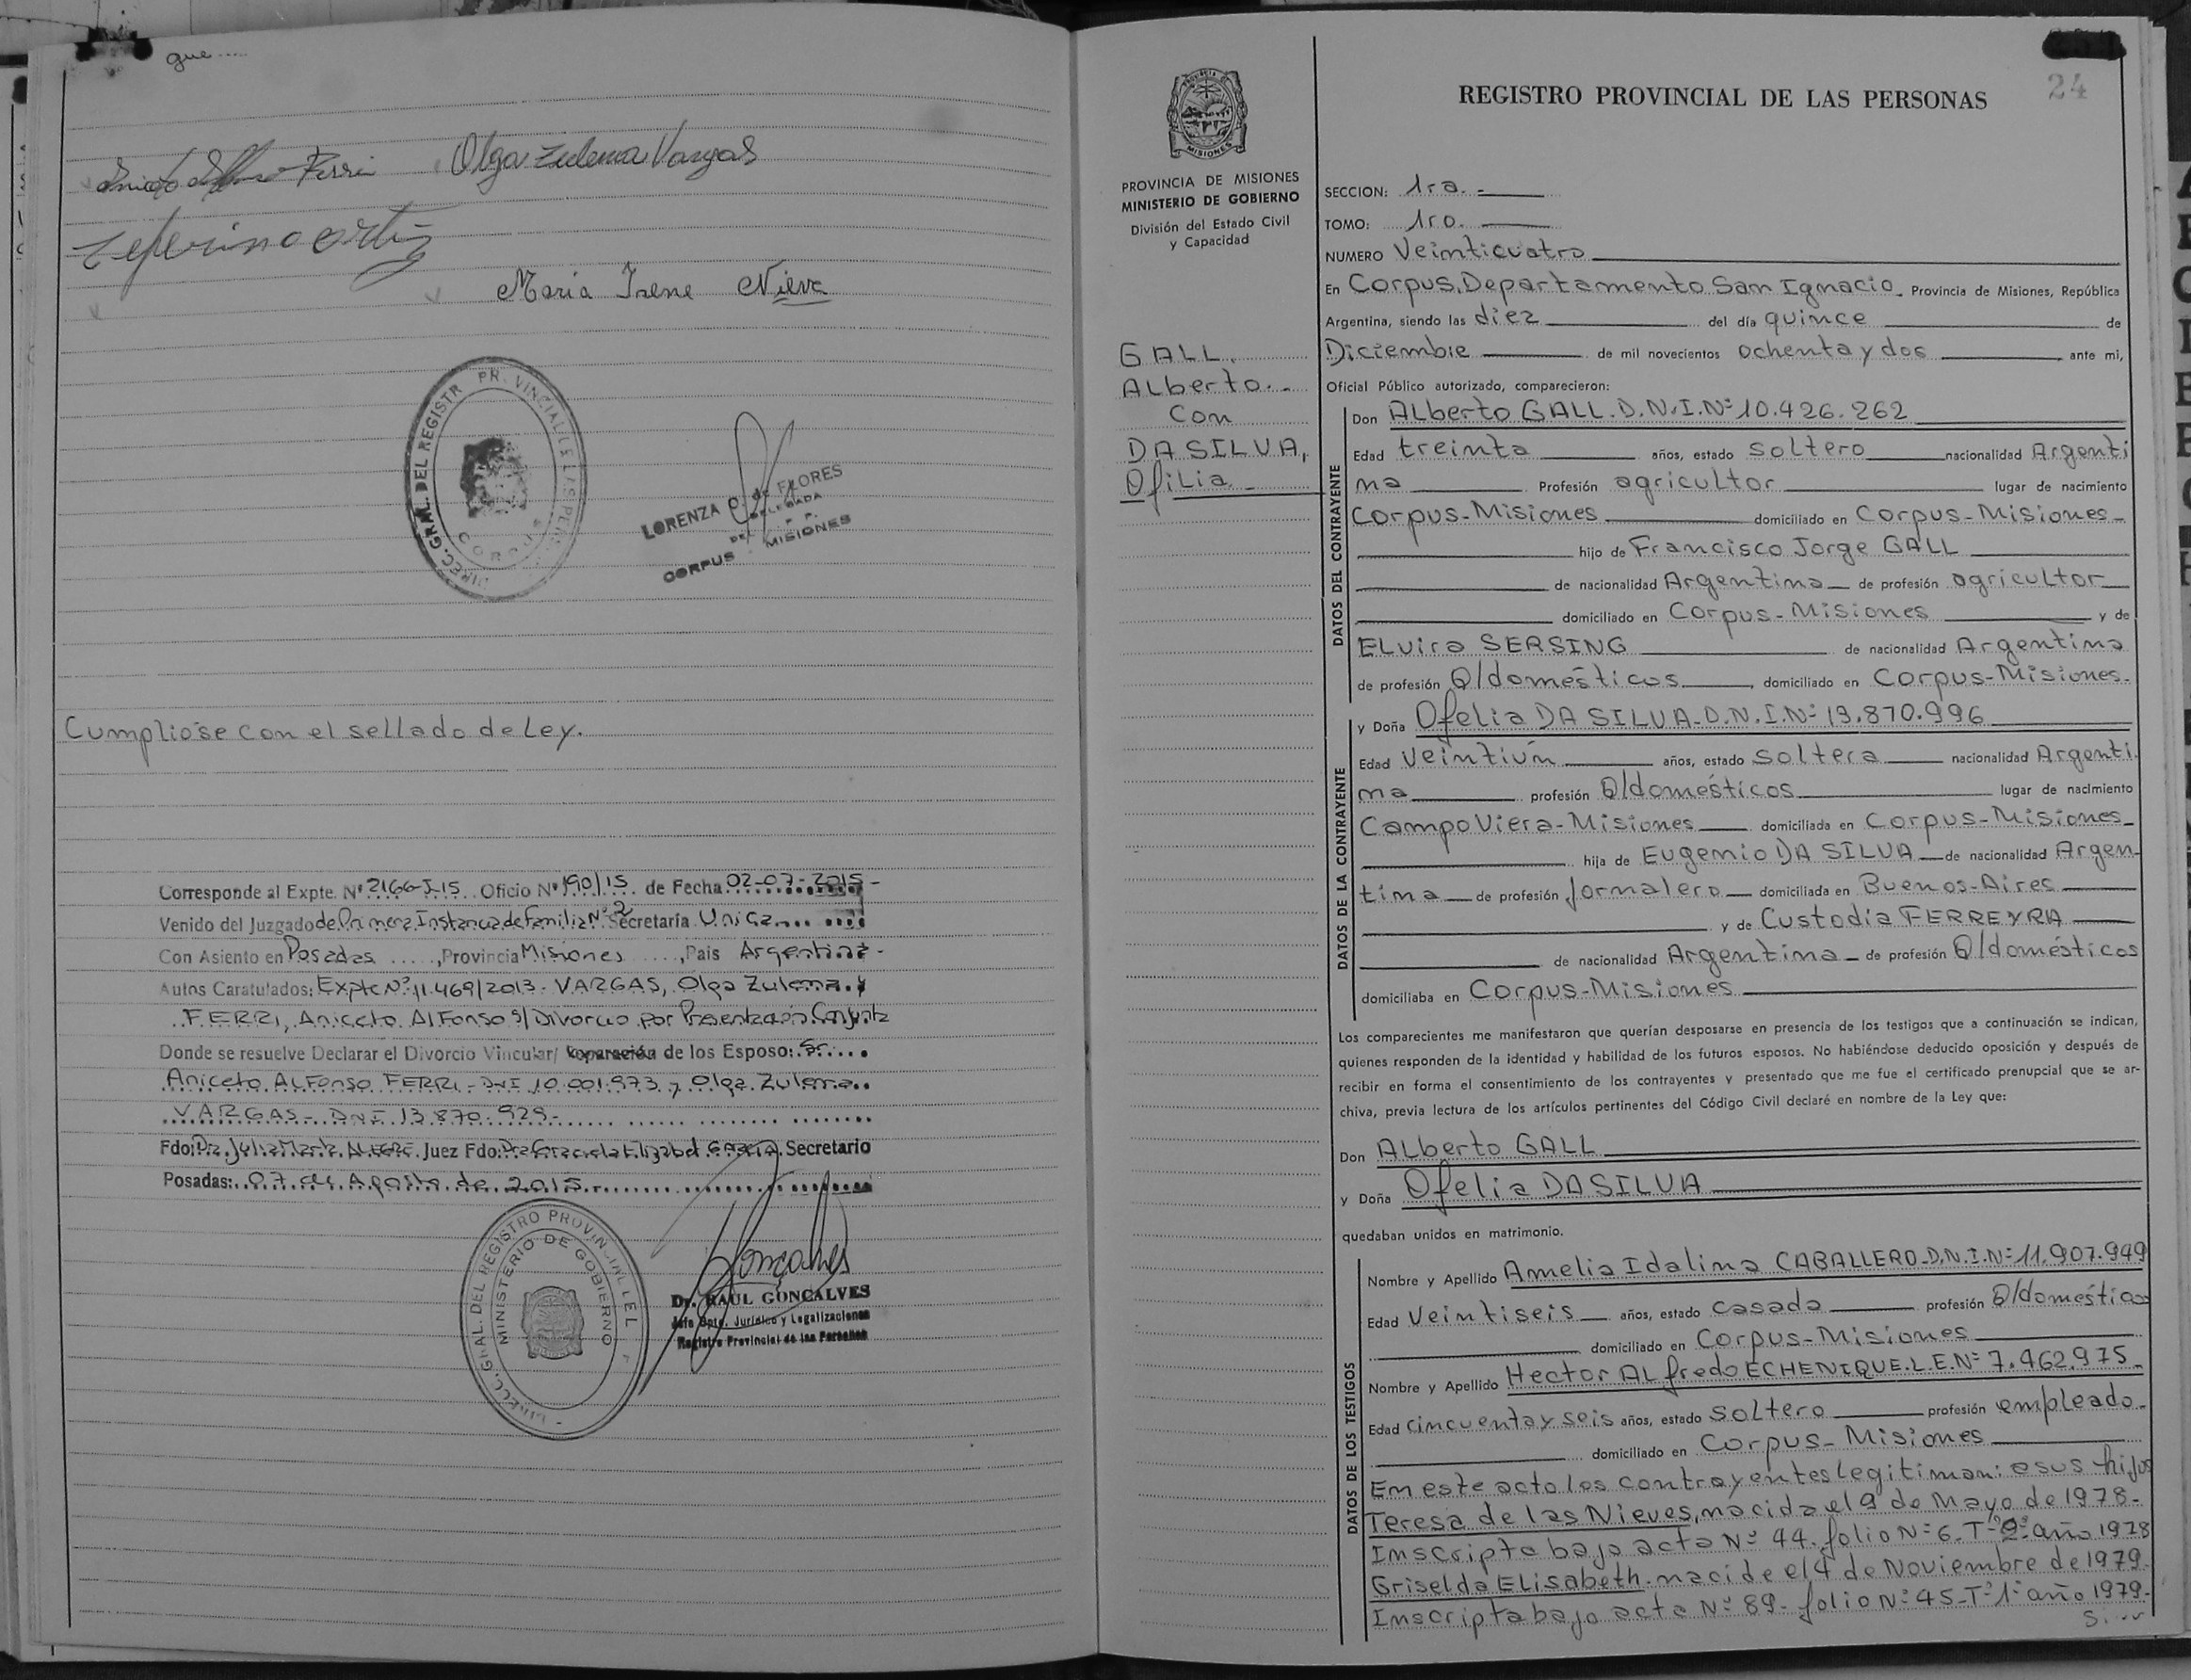 que....
Ferri Olga Zulema Vargas
Zeferino Ortiz
Maria Irene Nieva
DIREC. GRAL. DEL REGISTR PR. VINCIAL
CORPUS
LORENZA de FLORES
DELEGADA
CORPUS - MISIONES
Cumplióse con el sellado de Ley.
Corresponde al Expte. Nº 2166-J-15 Oficio Nº 190/15 de Fecha 02-07-2015-
Venido del Juzgado de Primera Instancia de Familia Nº 2 Secretaría Unica
Con Asiento en Posadas, Provincia Misiones, País Argentina-
Autos Caratulados: Expte Nº 11.469/2013. VARGAS, Olga Zulema y
FERRI, Aniceto Alfonso s/ Divorcio por Presentación Conjunta
Donde se resuelve Declarar el Divorcio Vincular/ Separación de los Esposo: Sr.
Aniceto Alfonso FERRI- DNI 10.001.973 y Olga Zulema
VARGAS- DNI 13.870.929-
Fdo: Dra. Julia Marta ALEGRE. Juez Fdo: Dra Graciela Elizabet Secretario
Posadas: 07 de Agosto de 2015.-
DIRECC. GRAL. DEL REGISTRO PROVINCIAL DE L
MINISTERIO DE GOBIERNO
Gonçalves
Dr. RAUL GONCALVES
Jefe Dpto. Jurídico y Legalizaciones
Registro Provincial de las Personas
24
REGISTRO PROVINCIAL DE LAS PERSONAS
PROVINCIA DE MISIONES
PROVINCIA DE MISIONES
MINISTERIO DE GOBIERNO
División del Estado Civil
y Capacidad
GALL.
Alberto.-
Con
DA SILVA,
Ofilia-
SECCION: 1ra.-
TOMO: 1ro.
NUMERO Veinticuatro
En Corpus, Departamento San Ignacio. Provincia de Misiones, República
Argentina, siendo las diez del día quince de
Diciembre de mil novecientos ochenta y dos ante mi,
Oficial Público autorizado, comparecieron:
DATOS DEL CONTRAYENTE
Don Alberto GALL. D.N.I.Nº 10.426.262
Edad treinta años, estado soltero nacionalidad Argenti
na Profesión agricultor lugar de nacimiento
Corpus-Misiones domiciliado en Corpus-Misiones-
hijo de Francisco Jorge GALL
de nacionalidad Argentina de profesión agricultor
domiciliado en Corpus-Misiones y de
Elvira SERSING de nacionalidad Argentina
de profesión Q/domésticos domiciliado en Corpus-Misiones-
DATOS DE LA CONTRAYENTE
y Doña Ofelia DA SILVA-D.N.I.Nº 13.870.996
Edad Veintiún años, estado soltera nacionalidad Argenti
na profesión Q/domésticos lugar de nacimiento
Campo Viera-Misiones domiciliada en Corpus-Misiones-
hija de Eugenio DA SILVA de nacionalidad Argen
tina de profesión Jornalero domiciliada en Buenos-Aires
y de Custodia FERREYRA
de nacionalidad Argentina de profesión Q/domésticos
domiciliaba en Corpus-Misiones
Los comparecientes me manifestaron que querían desposarse en presencia de los testigos que a continuación se indican,
quienes responden de la identidad y habilidad de los futuros esposos. No habiéndose deducido oposición y después de
recibir en forma el consentimiento de los contrayentes y presentado que me fue el certificado prenupcial que se ar-
chiva, previa lectura de los artículos pertinentes del Código Civil declaré en nombre de la Ley que:
Don Alberto GALL
y Doña Ofelia DA SILVA
quedaban unidos en matrimonio.
DATOS DE LOS TESTIGOS
Nombre y Apellido Amelia Idalina CABALLERO-D.N.I.Nº 11.907.949
Edad Veintiseis años, estado casada profesión Q/domésticos
domiciliado en Corpus-Misiones
Nombre y Apellido Hector Alfredo ECHENIQUE.L.E.Nº 7.462.975-
Edad cincuenta y seis años, estado soltero profesión empleado-
domiciliado en Corpus-Misiones
En este acto los contrayentes legitiman: a sus hijos
Teresa de las Nieves, nacida el 9 de Mayo de 1978-
Inscripta bajo acta Nº 44. folio Nº 6. Tº año 1978
Griselda Elisabeth. nacida el 4 de Noviembre de 1979.
Inscripta bajo acta Nº 89- folio Nº 45-Tº 1º año 1979.-
S....